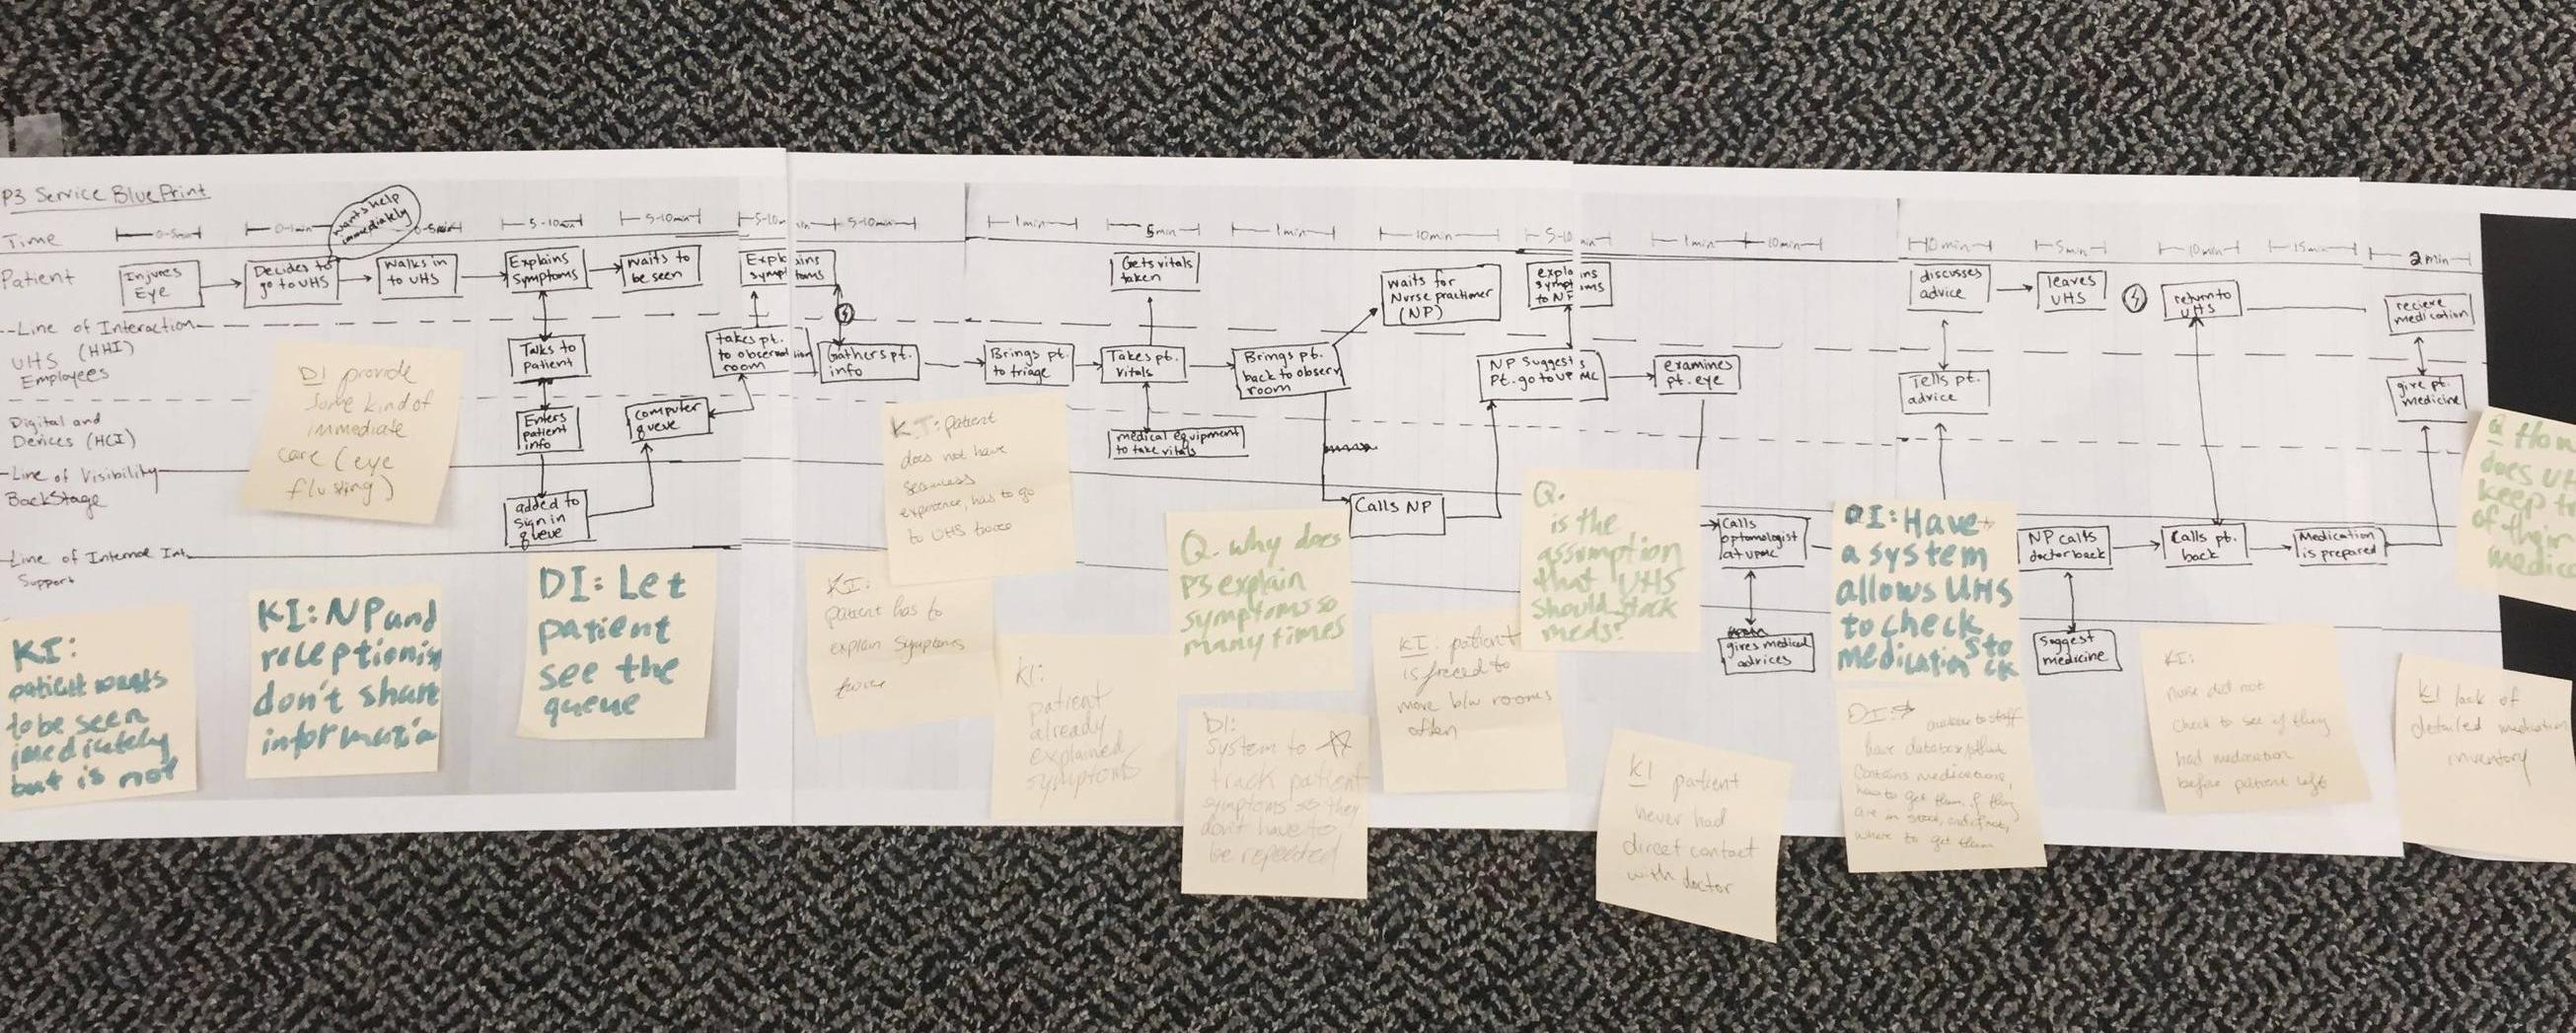 P3 Service BluePrint
Time
0-5min
0-1min
wants help
immediately
0-5min
5-10min
5-10min
5-10min
5-10min
1min
5min
1min
10min
5-10min
1min
10min
10min
5min
10min
15min
2min
Patient
Injures
Eye
Decides to
go to UHS
Walks in
to UHS
Explains
Symptoms
waits to
be seen
Gets vitals
taken
waits for
Nurse practioner
(NP)
explains
symptoms
to NP
discusses
advice
leaves
UHS
return to
UHS
recieve
medication
--Line of Interaction
UHS (HHI)
Employees
Talks to
patient
takes pt.
to observation
room
Gathers pt.
info
Brings pt.
to triage
Takes pt.
vitals
Brings pt.
back to observ
room
NP Suggests
Pt. go to UPMC
examines
pt. eye
Tells pt.
advice
give pt.
medicine
Digital and
Devices (HCI)
Enters
patient
info
computer
queue
medical equipment
to take vitals
-Line of Visibility
BackStage
added to
sign in
queue
Calls NP
Calls
optomologist
at UPMC
NP calls
doctor back
Calls pt.
back
Medication
is prepared
-Line of Internal Int.
Support
gives medical
advices
Suggest
medicine
DI provide
some kind of
immediate
care (eye
flusting)
KI:
patient wants
to be seen
imediately
but is not
KI: NP and
receptionis
don't share
informatio
DI: Let
patient
see the
queue
KI: patient
does not have
seamless
experience, has to go
to UHS twice
KI:
patient has to
explain symptoms
twice
KI:
patient
already
explained
symptoms
Q. why does
P3 explain
symptoms so
many times
DI:
System to
track patient
symptoms so they
don't have to
be repeated
KI: patient
is forced to
move b/w rooms
often
Q.
is the
assumption
that UHS
should stock
meds?
KI patient
never had
direct contact
with doctor
DI: Have
a system
allows UHS
to check
medication sto
ck
DI:
have database that
contains medications,
how to get them, if they
are in stock, and if not,
where to get them
KI:
nurse did not
check to see if they
had medication
before patient left
KI lack of
detailed medication
inventory
Q How
does UH
keep t
of their
medica